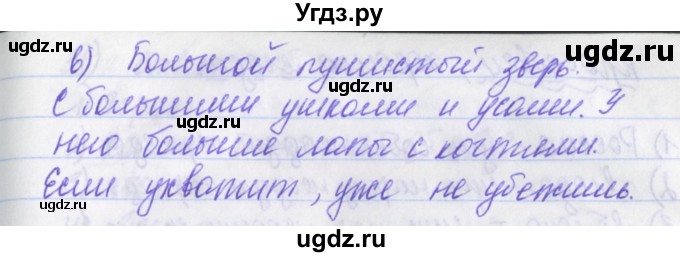 Угдз.ру
в) Большой пушистый зверь.
С большими ушками и усами. У
него большие лапы с когтями.
Если ухватит, уже не убежишь.
ugdz.ru
ugdz.ru
ugdz.ru
ugdz.ru
ugdz.ru
ugdz.ru
ugdz.ru
ugdz.ru